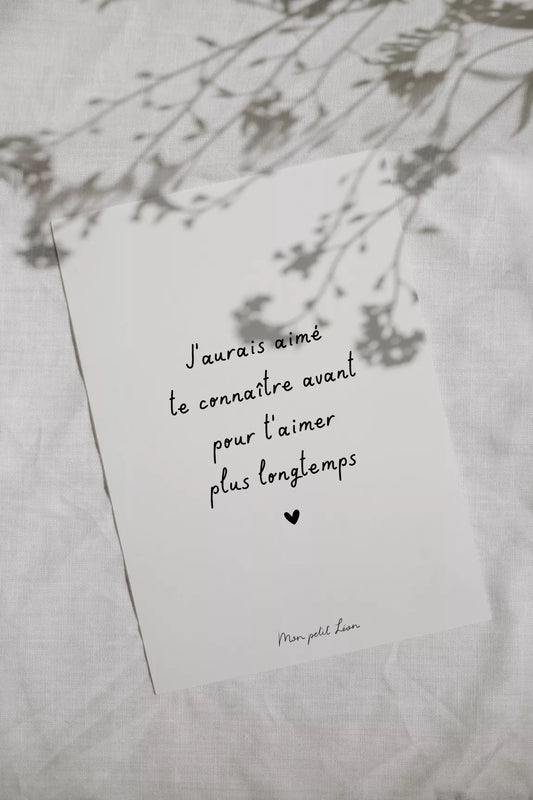 J'aurais aimé
te connaître avant
pour t'aimer
plus longtemps
Mon petit Léon